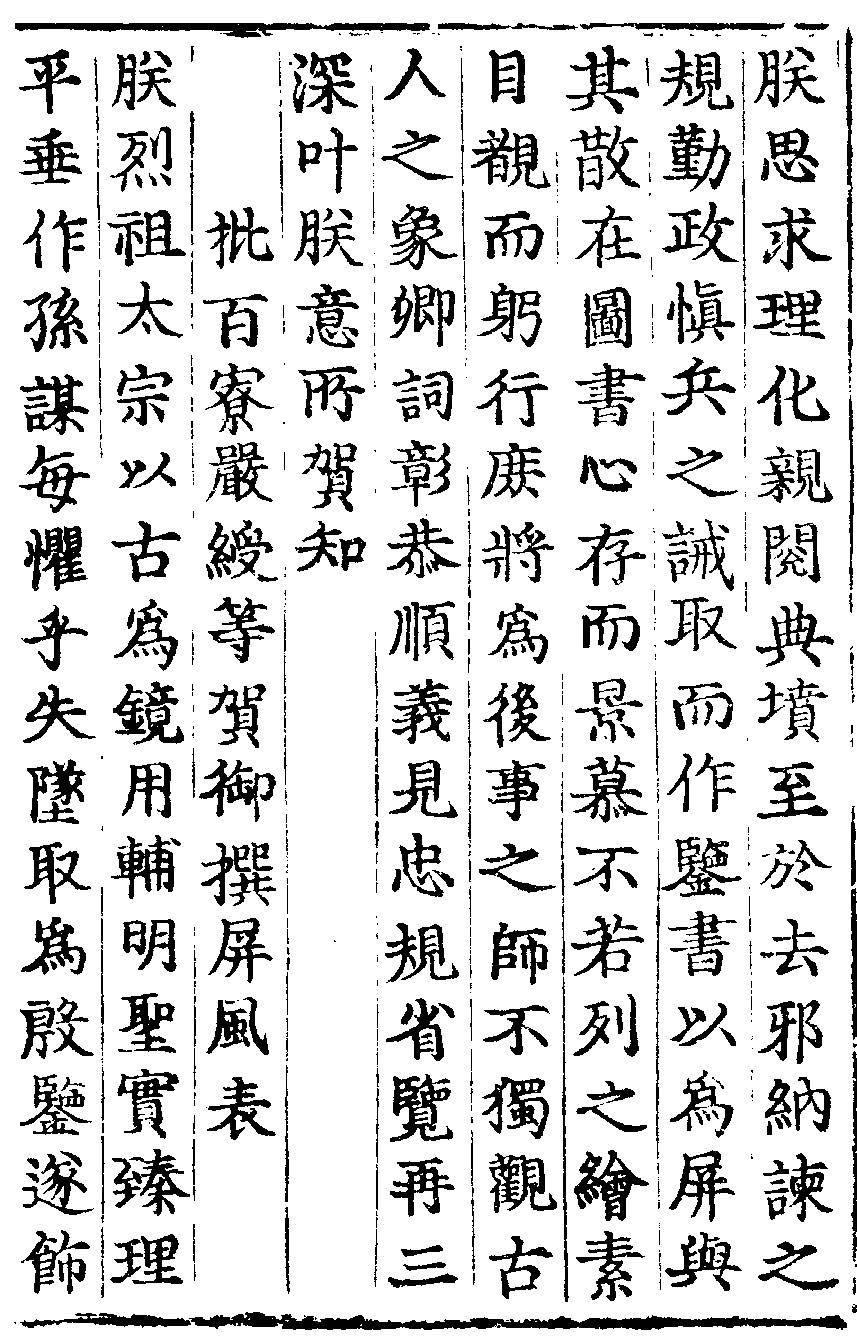 朕思求理化親閱典墳至於去邪納諫之
規勤政慎兵之誡取而作鑒書以為屏與
其散在圖書心存而景慕不若列之繪素
目覩而躬行庶將為後事之師不獨觀古
人之象卿詞彰恭順義見忠規省覽再三
深叶朕意所賀知
批百寮嚴綬等賀御撰屏風表
朕烈祖太宗以古為鏡用輔明聖實臻理
平垂作孫謀每懼乎失墜取為殷鑒遂飾